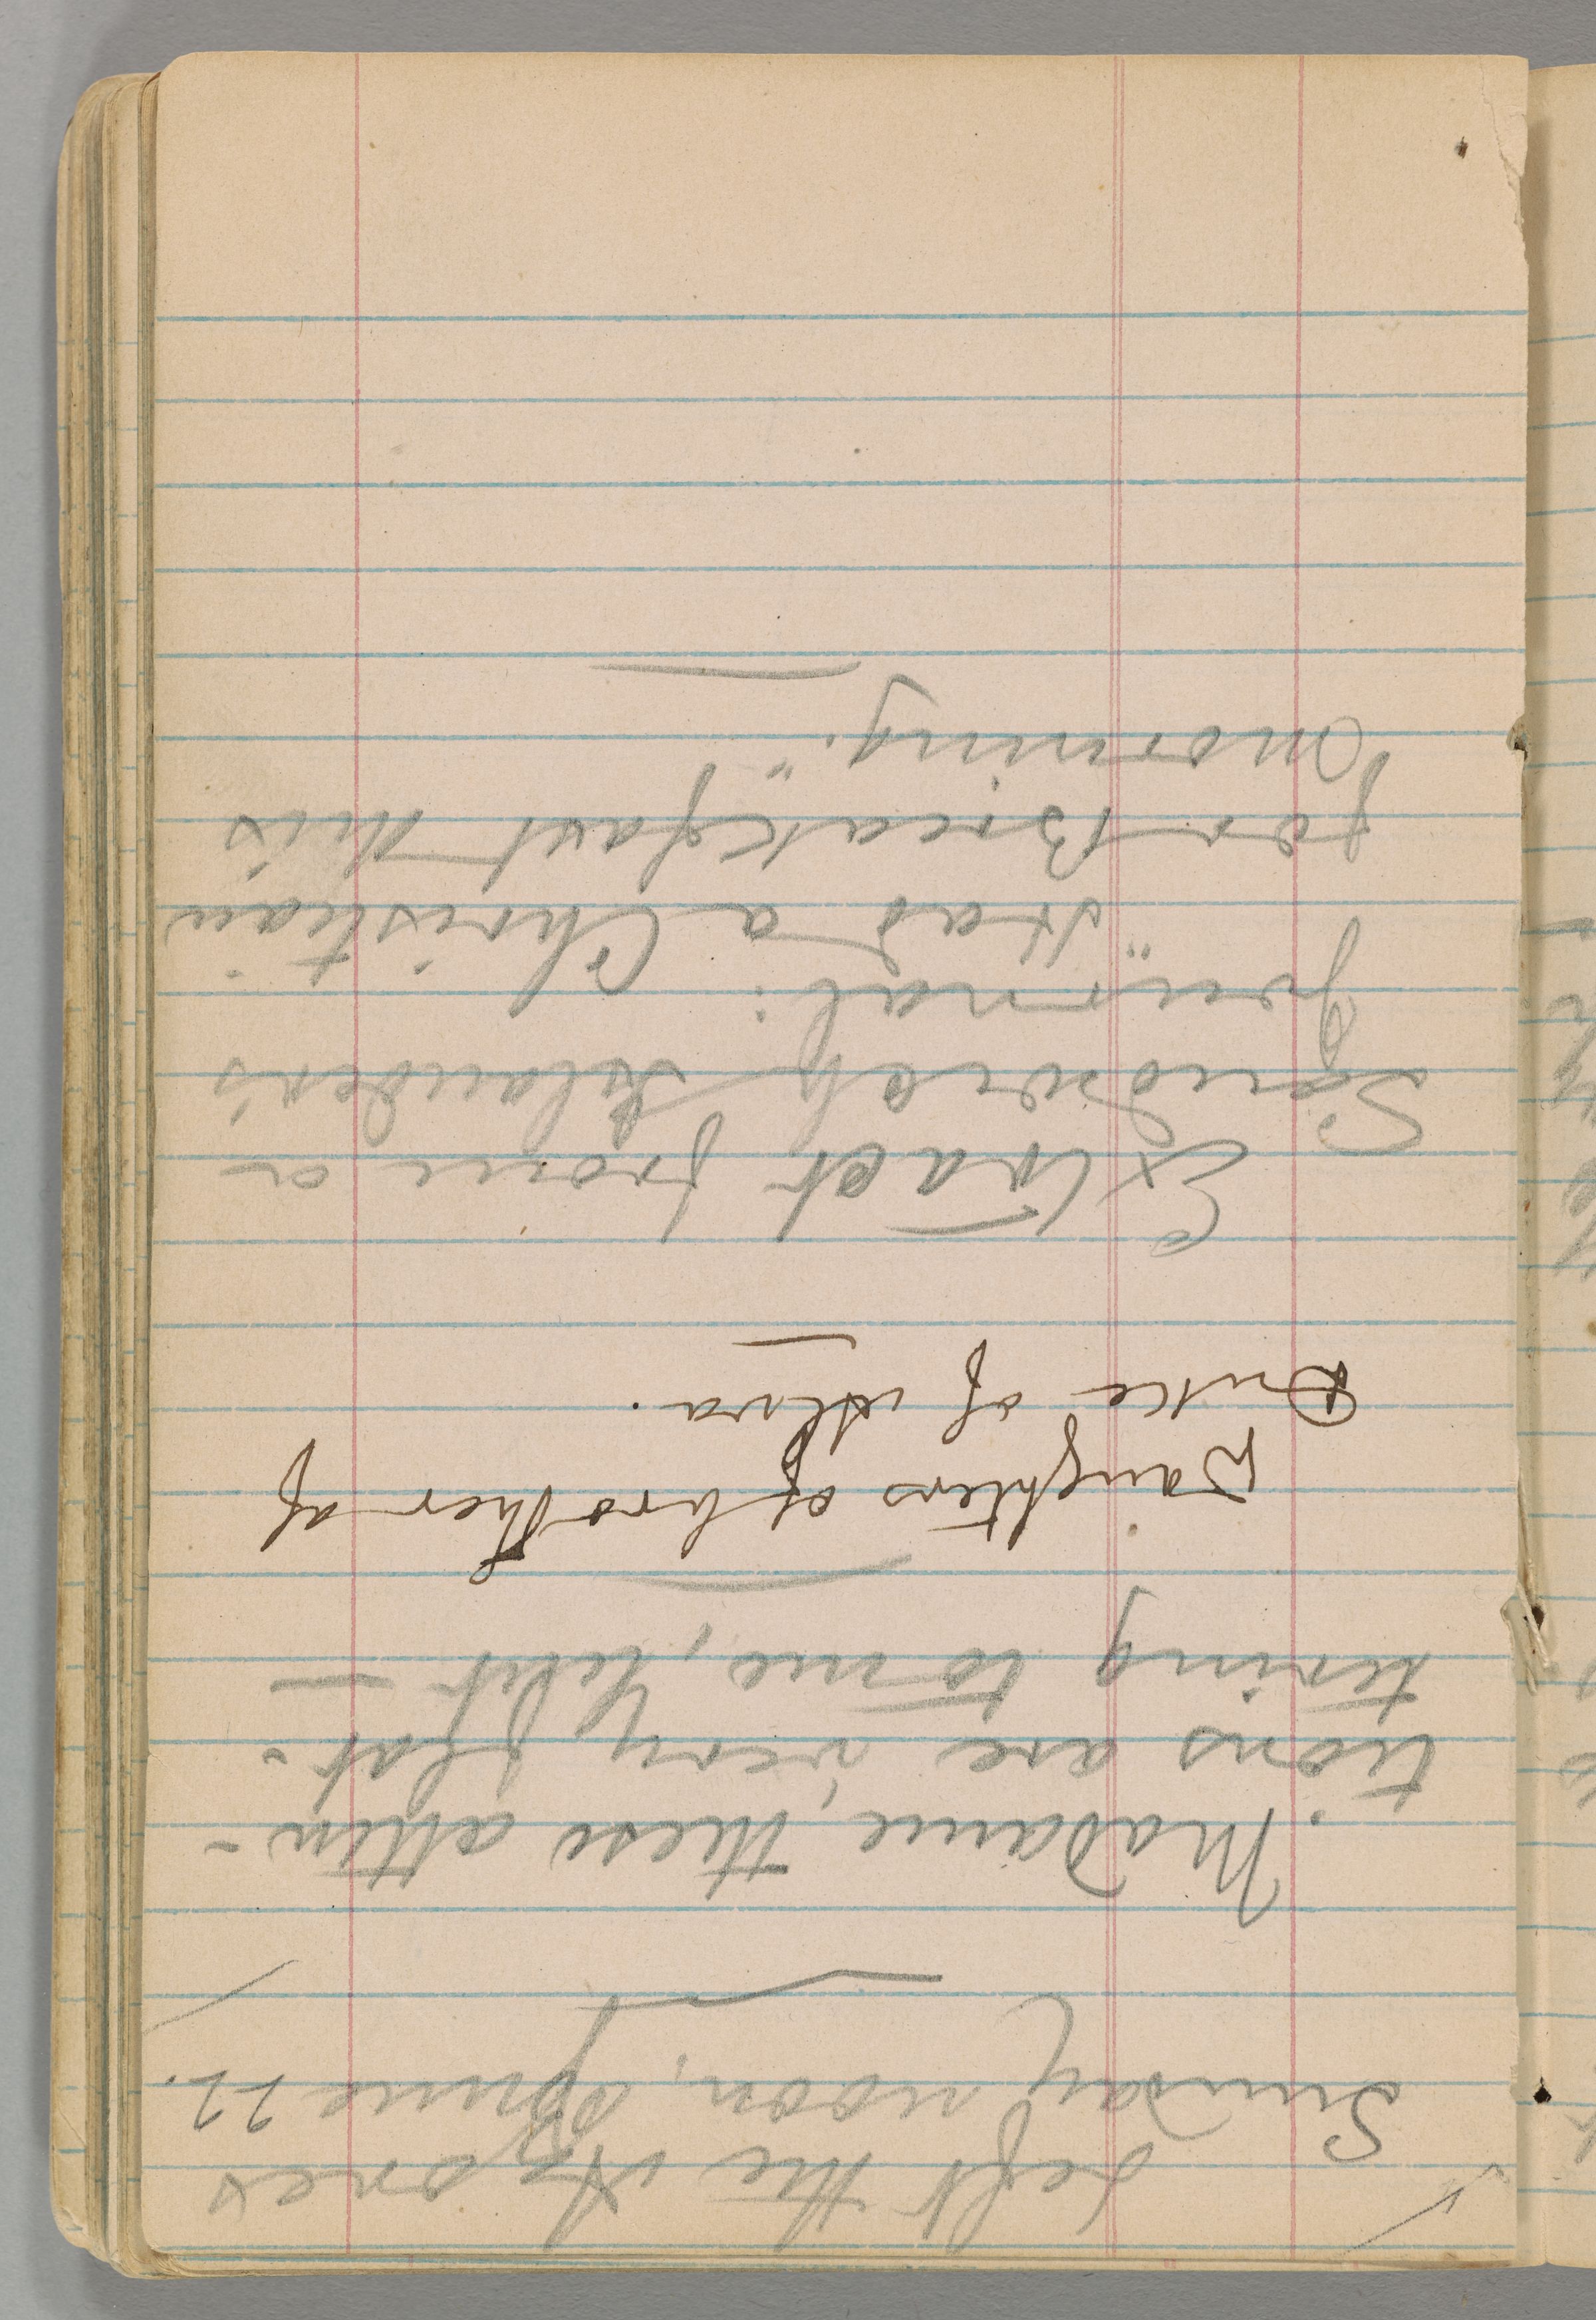 Left the Azores
Sunday noon, June 22.
Madame, these atten-
tions are very flat-
tering to me, but —
Daughters of brother of
Duke of Alva.
Extract from a
Sandwich Islander's
journal: "Had a Christian
for Breakfast this
morning."